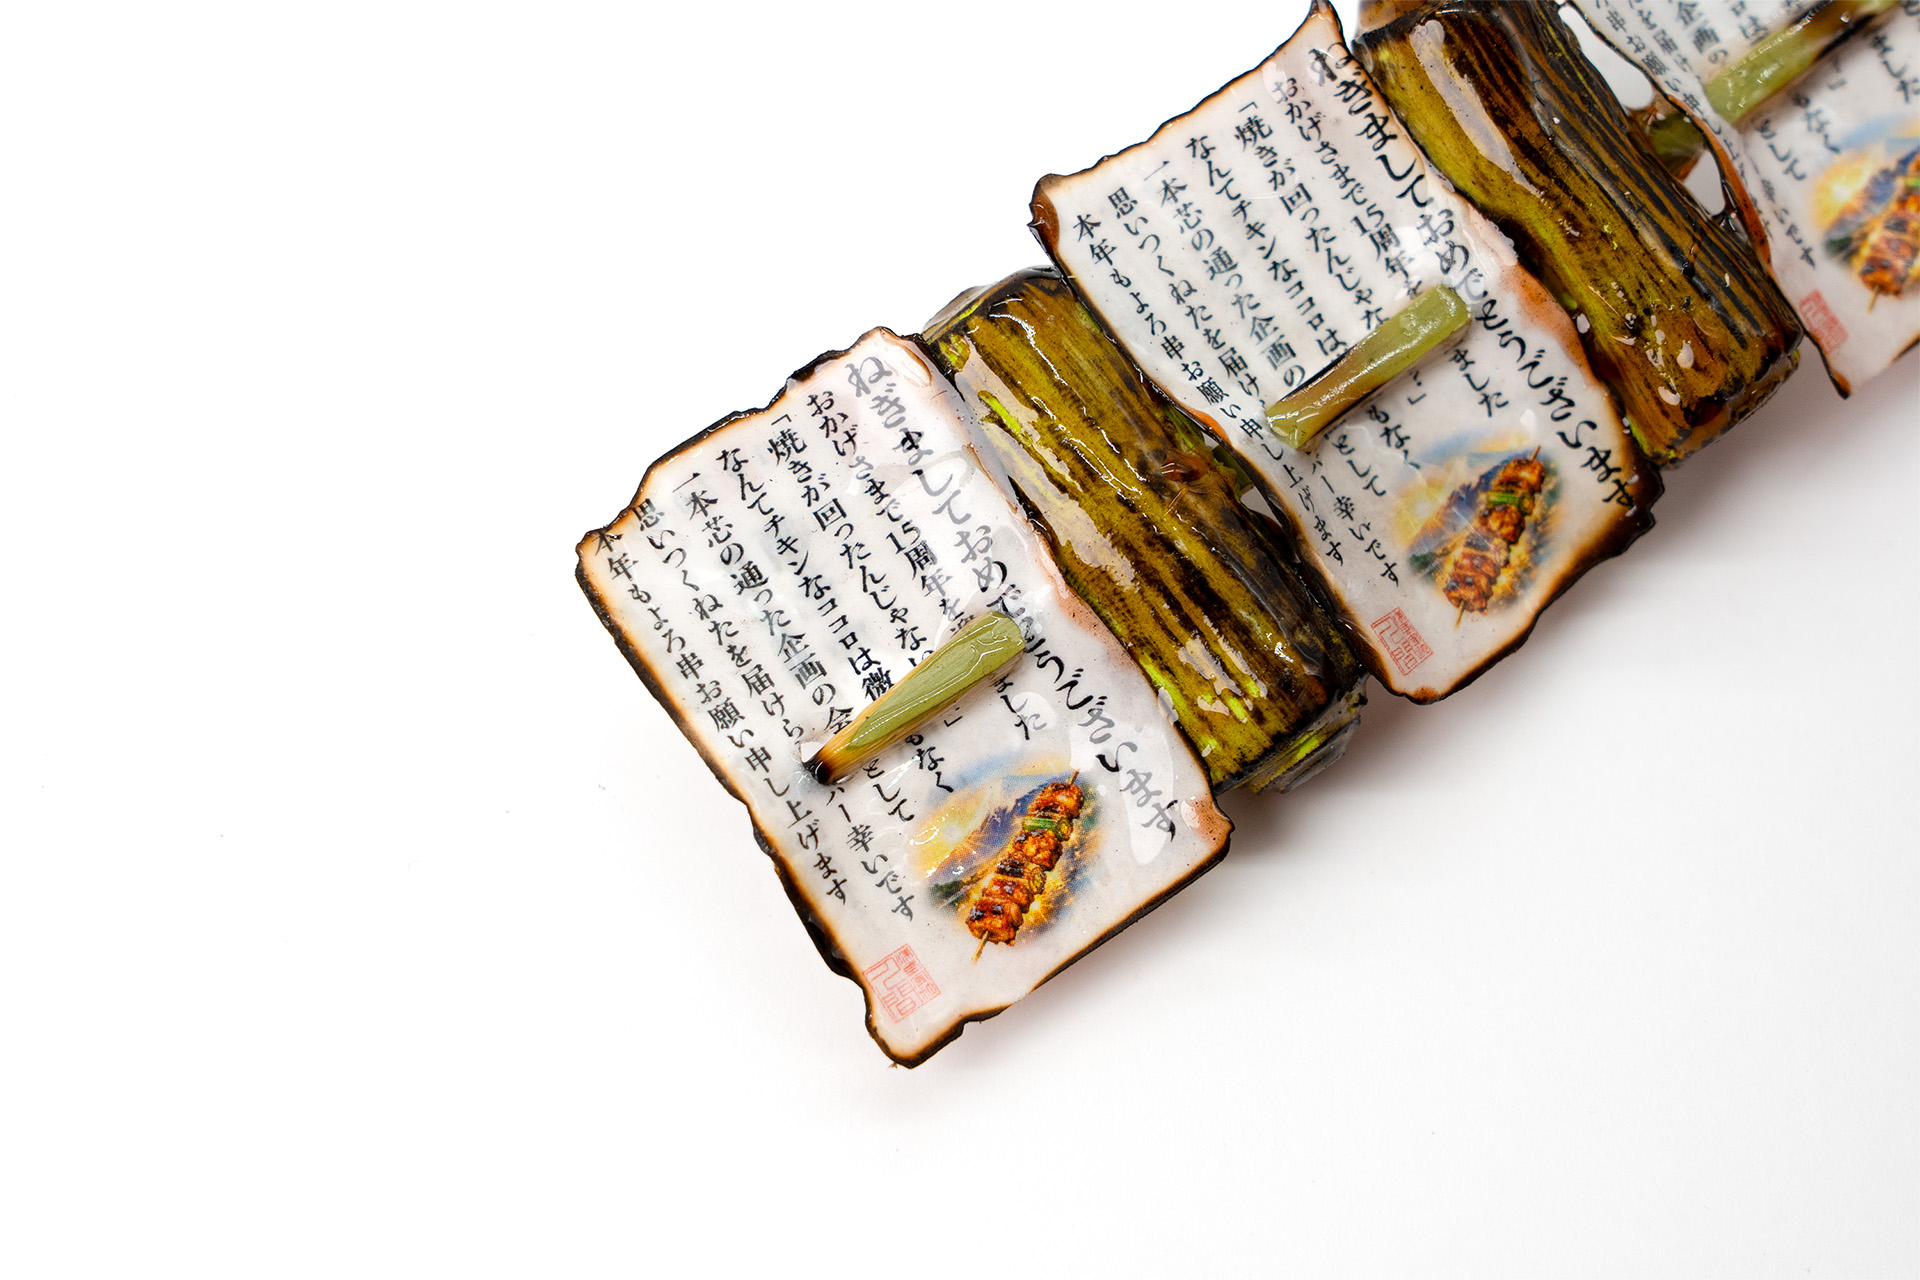 ねぎましておめでとうございます
おかげさまで15周年を ました
「焼きが回ったんじゃない 」
なんてチキンなココロは微 もなく
一本芯の通った企画の会 として
思いつくねたを届けら バー幸いです
本年もよろ串お願い申し上げます
ねぎましておめでとうございます
おかげさまで15周年を ました
「焼きが回ったんじゃな 」
なんてチキンなココロは もなく
一本芯の通った企画の として
思いつくねたを届け バー幸いです
本年もよろ串お願い申し上げます
ました
は もなく
企画の として
を届け いです
串お願い申し上